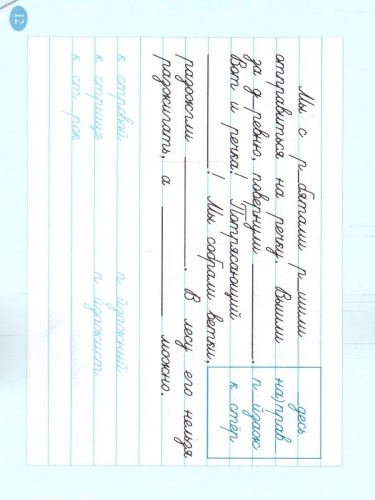 Мы с р_бятами р_шили
отправиться на речку. Вышли
за д_ревню, повернули ______.
Вот и речка! Потрясающий
______! Мы собрали ветки,
разожгли ______. В лесу его нельзя
разжигать, а ______ можно.
_десь
на)прав_
п_йзаж
к_стёр
к_стровой п_йзажный
к_стрище п_йзажист
к_ст_рок
12